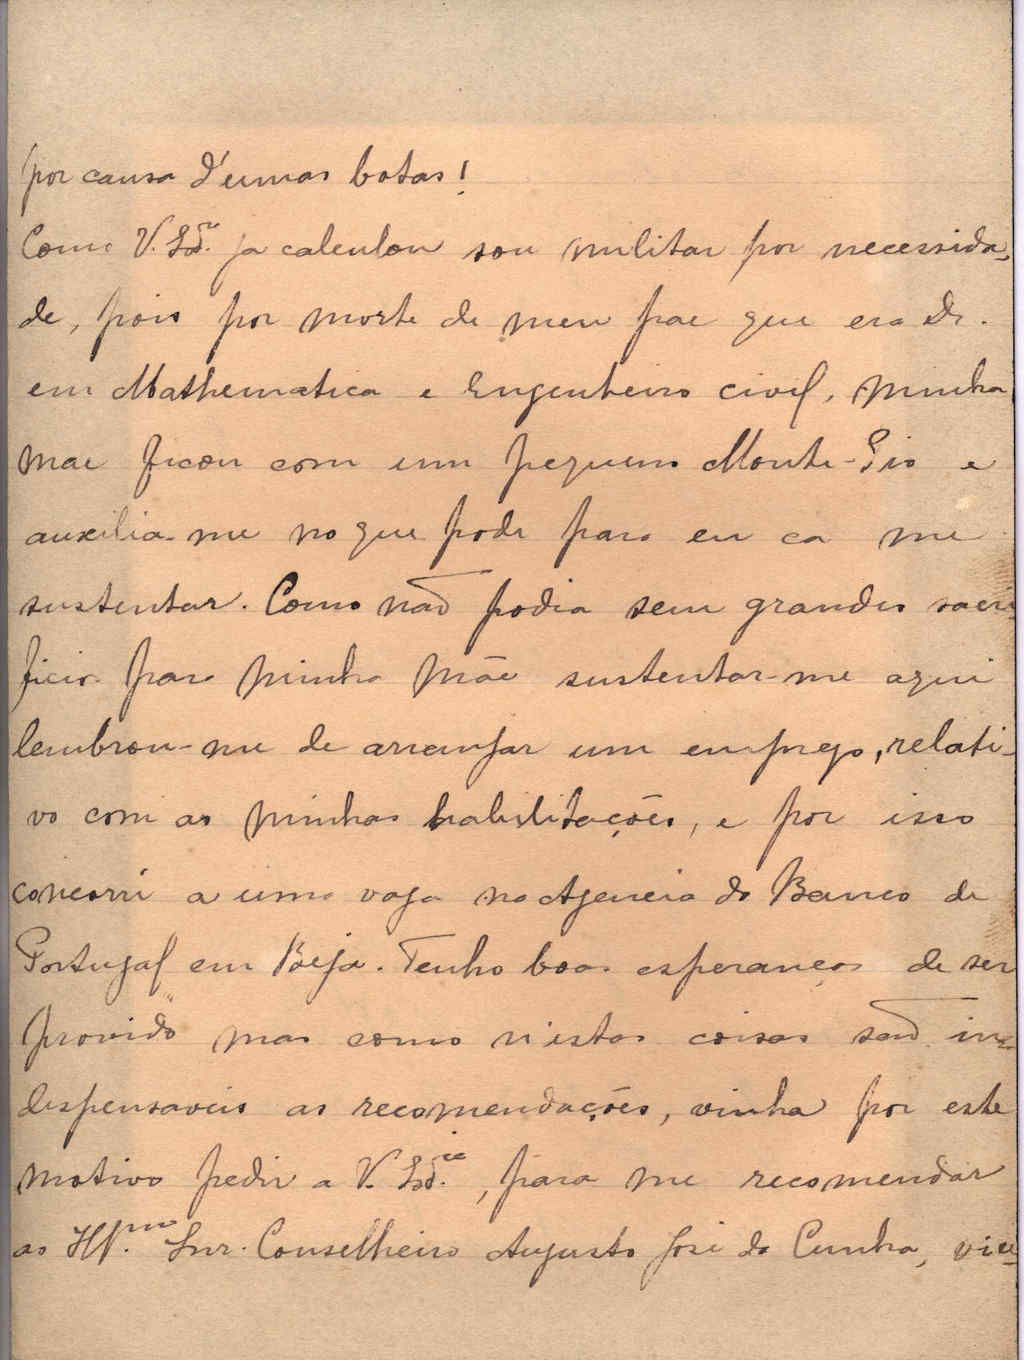 por causa d'umas botas!
Como V. Sª. ja calculou sou militar por necessida-
de, pois por morte de meu pae que era Dr.
em Mathematica e Engenheiro civil, minha
mae ficou com um pequeno Monte-Pio e
auxilia-me no que pode para eu ca me
sustentar. Como não podia sem grandes sacri
ficio para minha mãe sustentar-me aqui
lembrou-me de arranjar um emprego, relati-
vo com as minhas habilitações, e por isso
concorri a uma vaga na Agencia do Banco de
Portugal em Beja. Tenho boas esperanças de ser
provido mas como n'estas coisas são in-
dispensaveis as recomendações, vinha por este
motivo pedir a V. , para me recomendar
ao Snr. Conselheiro Augusto José da Cunha, vice-